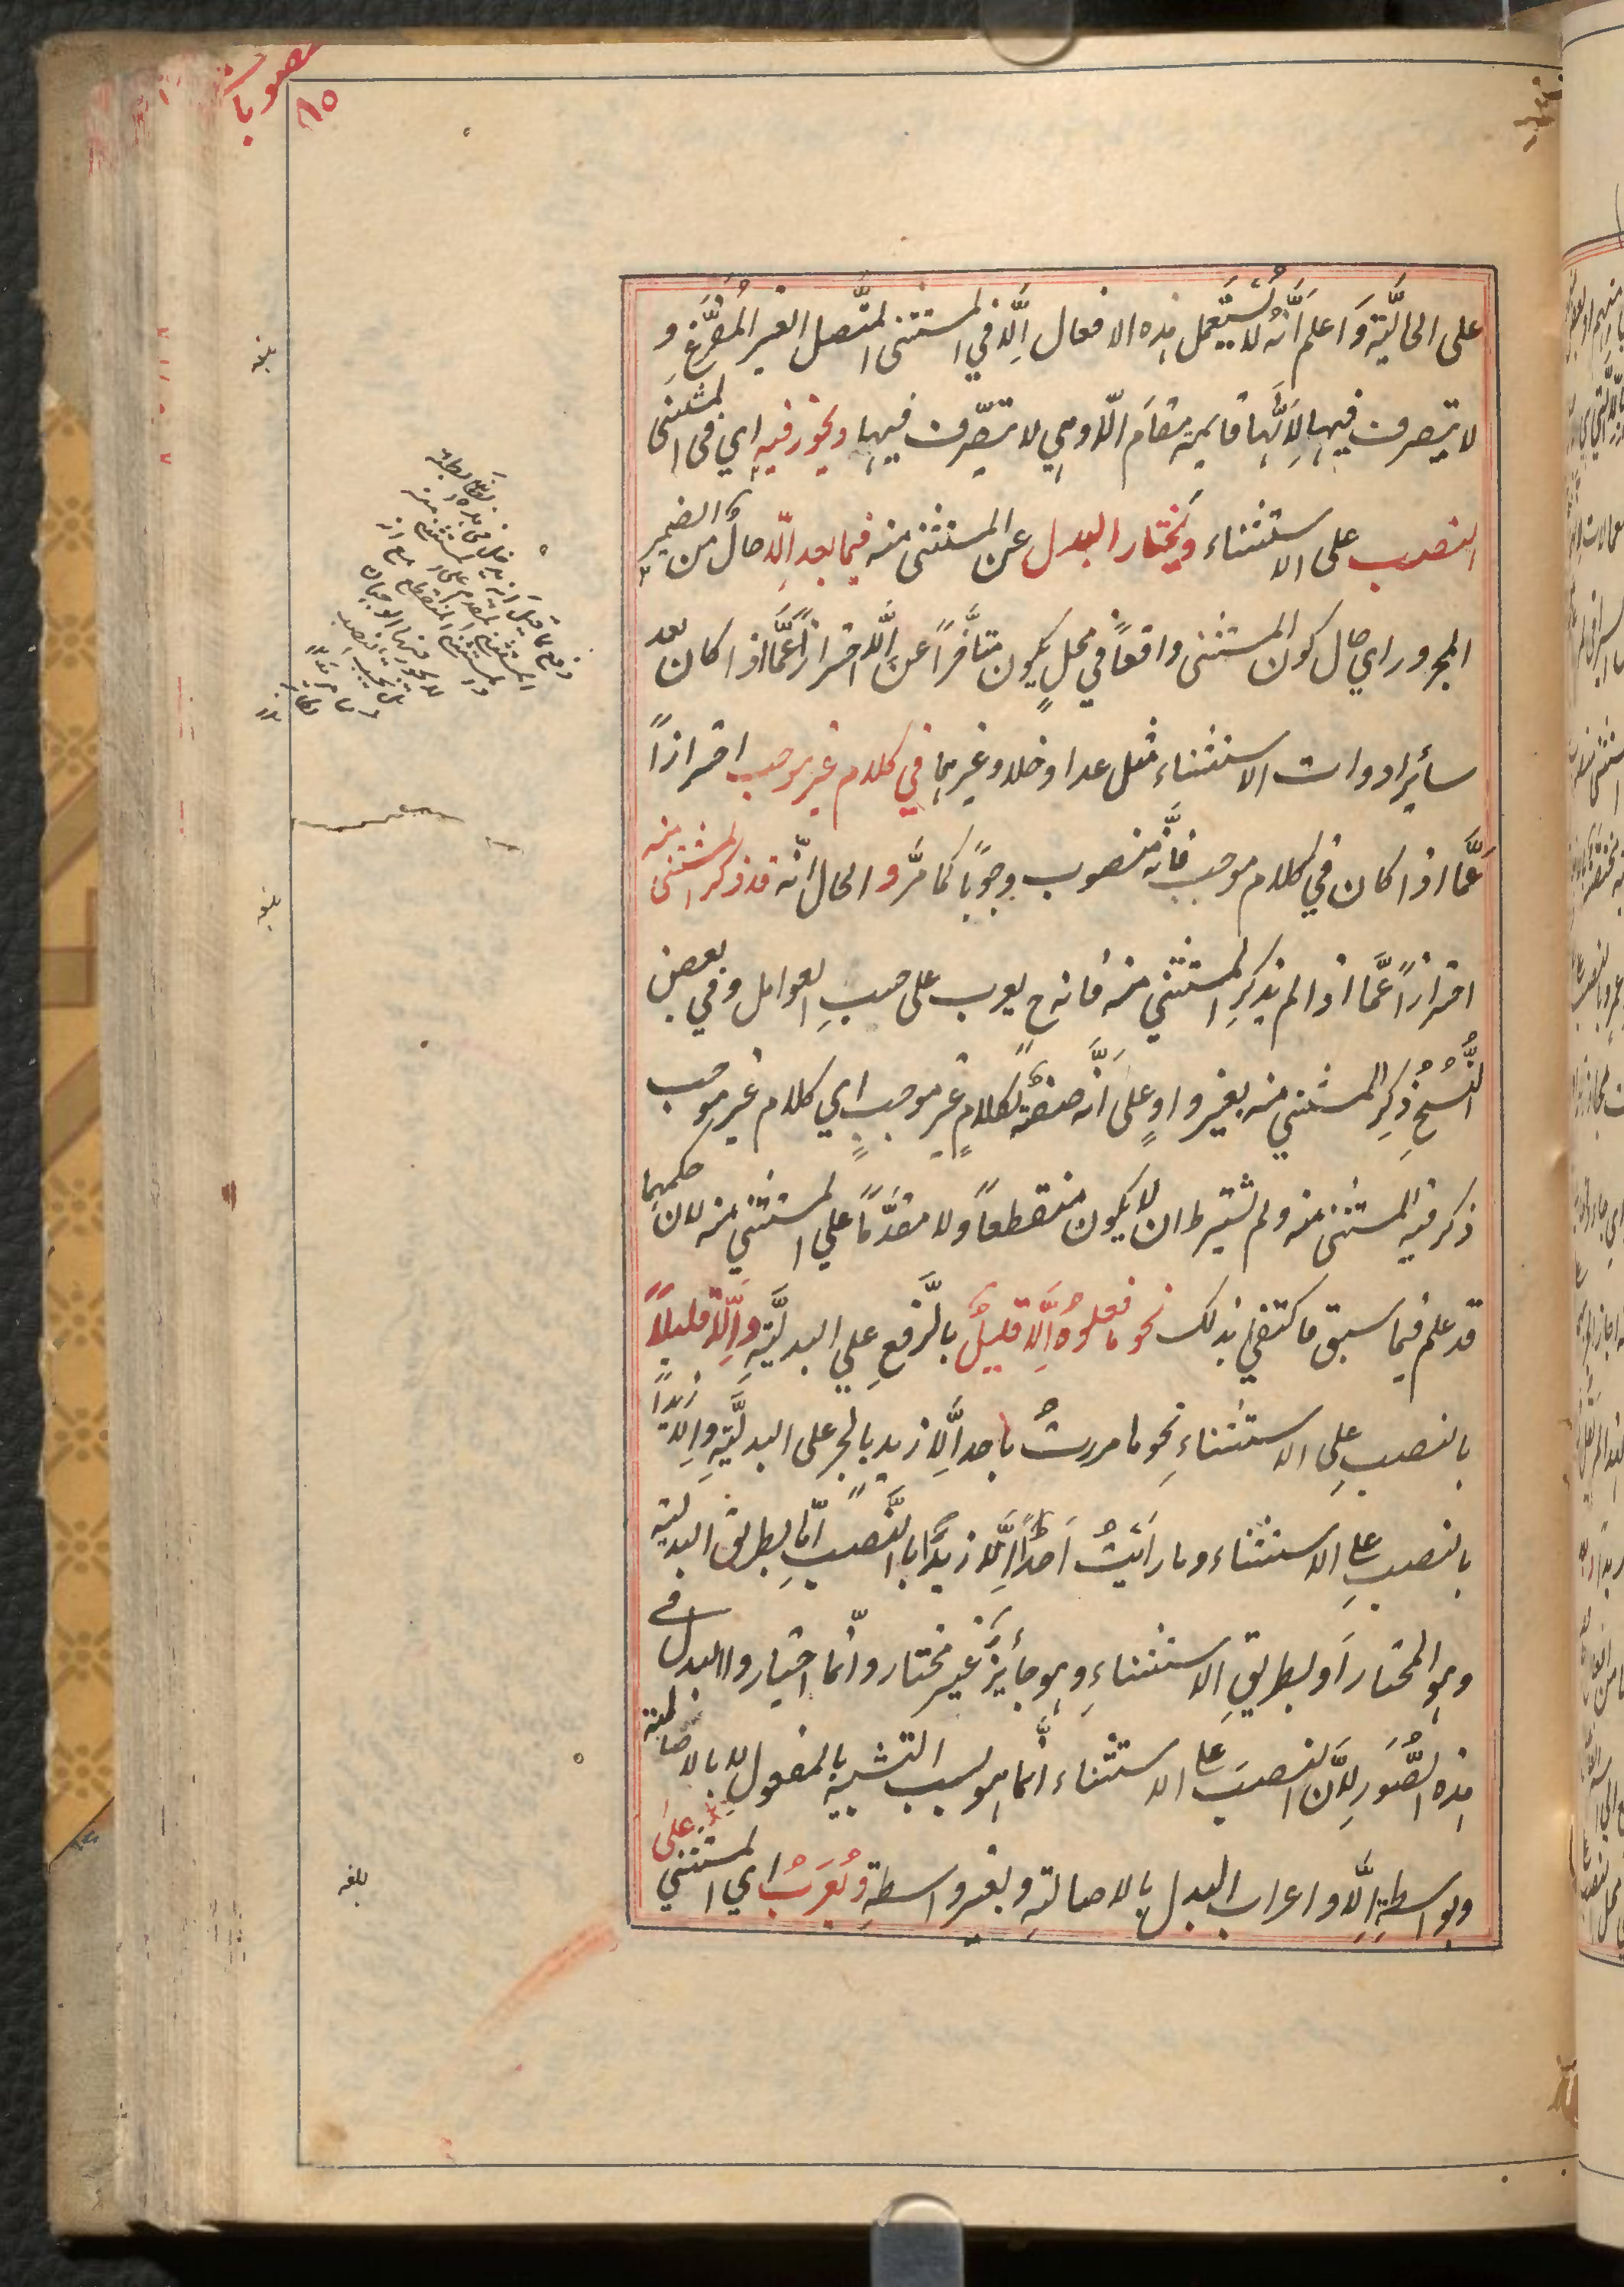 منصوبات
٨٥
على الحاليّة وَاعلم انّه لا يُستَعمل هذه الافعال اِلّا في المستثنى المتّصل الغير المُفرَّغِ و
لا يتصرف فيها لِاَنّها قايمة مقامَ الّا وهي لا يتصرّف فيها ويجوز فيه اي في المستثنى
النصب على الاستثناء ويُختار البدل عن المستثنى منه فيما بعد اِلّا حالٌ من الضمير
المجرور اي حال كون المستثنى واقعاً في محلٍ يكون متأخّراً عن اِلّا احترازاً عمَّا اذا كان بعد
سائِر ادوات الاستثناء مثل عدا وخلا وغيرهما في كلام غير موجب احترازاً
عَمَّا اذا كان في كلام موجب فانّه منصوب وجوباً كما مرَّ و الحال انّه قد ذكر المستثنى منه
احترازاً عَمَّا اذا لم يذكرِ المستثني منه فانه ح يعرب على حسبِ العوامل وفي بعض
النُّسُخِ ذُكِر المستثني منه بغير واوٍ على اَنَّه صفةٌ لكلامٍ غيرِ موجبٍ اي كلام غير موجب
ذكر فيه المستثنى منه ولم يشترط ان لا يكون منقطعاً ولا مقدَّماً علي المستثني منه لان حكمهما
قد علم فيما سبق فاكتفي بذلك نحو ما فعلوهُ اِلَّا قليلٌ بالرَّفعِ علي البدليَّةِ واِلّا قليلاً
بالنصبِ علي الاستثناءِ نحو ما مررتُ باحد اِلَّا زيدٍ بالجر على البدليَّةِ واِلّا زيداً
بالنصبِ على الاستثناء وما رَاَيتُ اَحَداً اِلَّا زيداً بالنَّصبِ اِمّا بطريق البدلية
وهو المختار اَو بطريقِ الاستثناءِ وهو جائِزٌ غير مختار وانّما اختاروا البدل في
هذه الصُّوَر لِاَنَّ النصبَ على الاستثناء انّما هو بسبب التشبيه بالمفعول لا بالاصالة
وبواسطةِ اِلَّا واعراب البدل بالاصالةِ وبغير واسطةٍ ويُعرَبُ اي المستثني على
بلغه